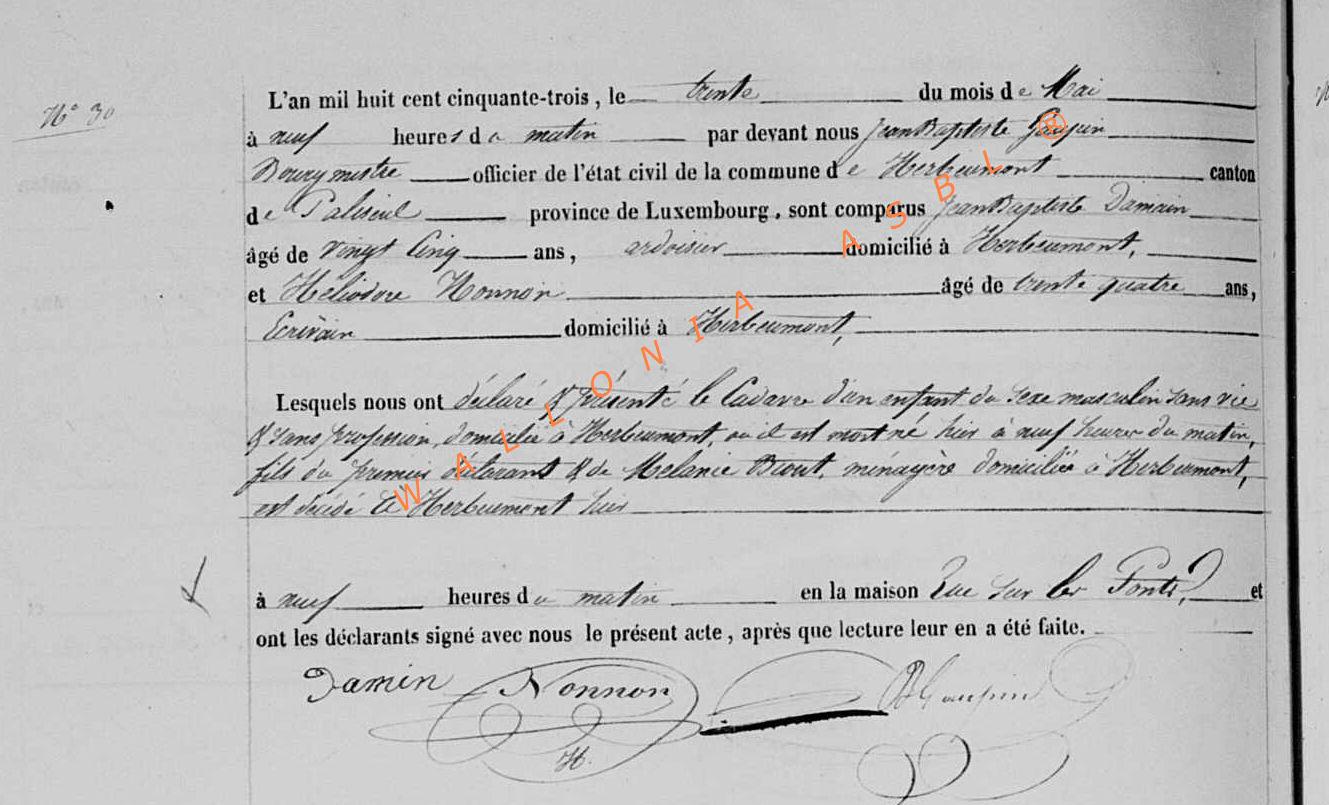 N° 30
L'an mil huit cent cinquante-trois, le trente du mois de Mai
à neuf heures du matin par devant nous Jean Baptiste Gaupin
Bourgmestre officier de l'état civil de la commune de Herbeumont canton
de Paliseul province de Luxembourg, sont comparus Jean Baptiste Damain
âgé de vingt Cinq ans, ardoisier domicilié à Herbeumont,
et Héliodore Nonnon âgé de trente quatre ans,
Ecrivain domicilié à Herbeumont,
Lesquels nous ont déclaré & présenté le Cadavre d'un enfant du sexe masculin sans vie
& sans profession, domicilié à Herbeumont, où il est mort né hier à neuf heures du matin,
fils du premier déclarant & de Mélanie ménagère domiciliée à Herbeumont,
est décédé à Herbeumont hier
à neuf heures du matin en la maison Rue sur les Ponts, et
ont les déclarants signé avec nous le présent acte, après que lecture leur en a été faite.
Damin Nonnon Gaupin
H.
WALLONIA ASBL ®